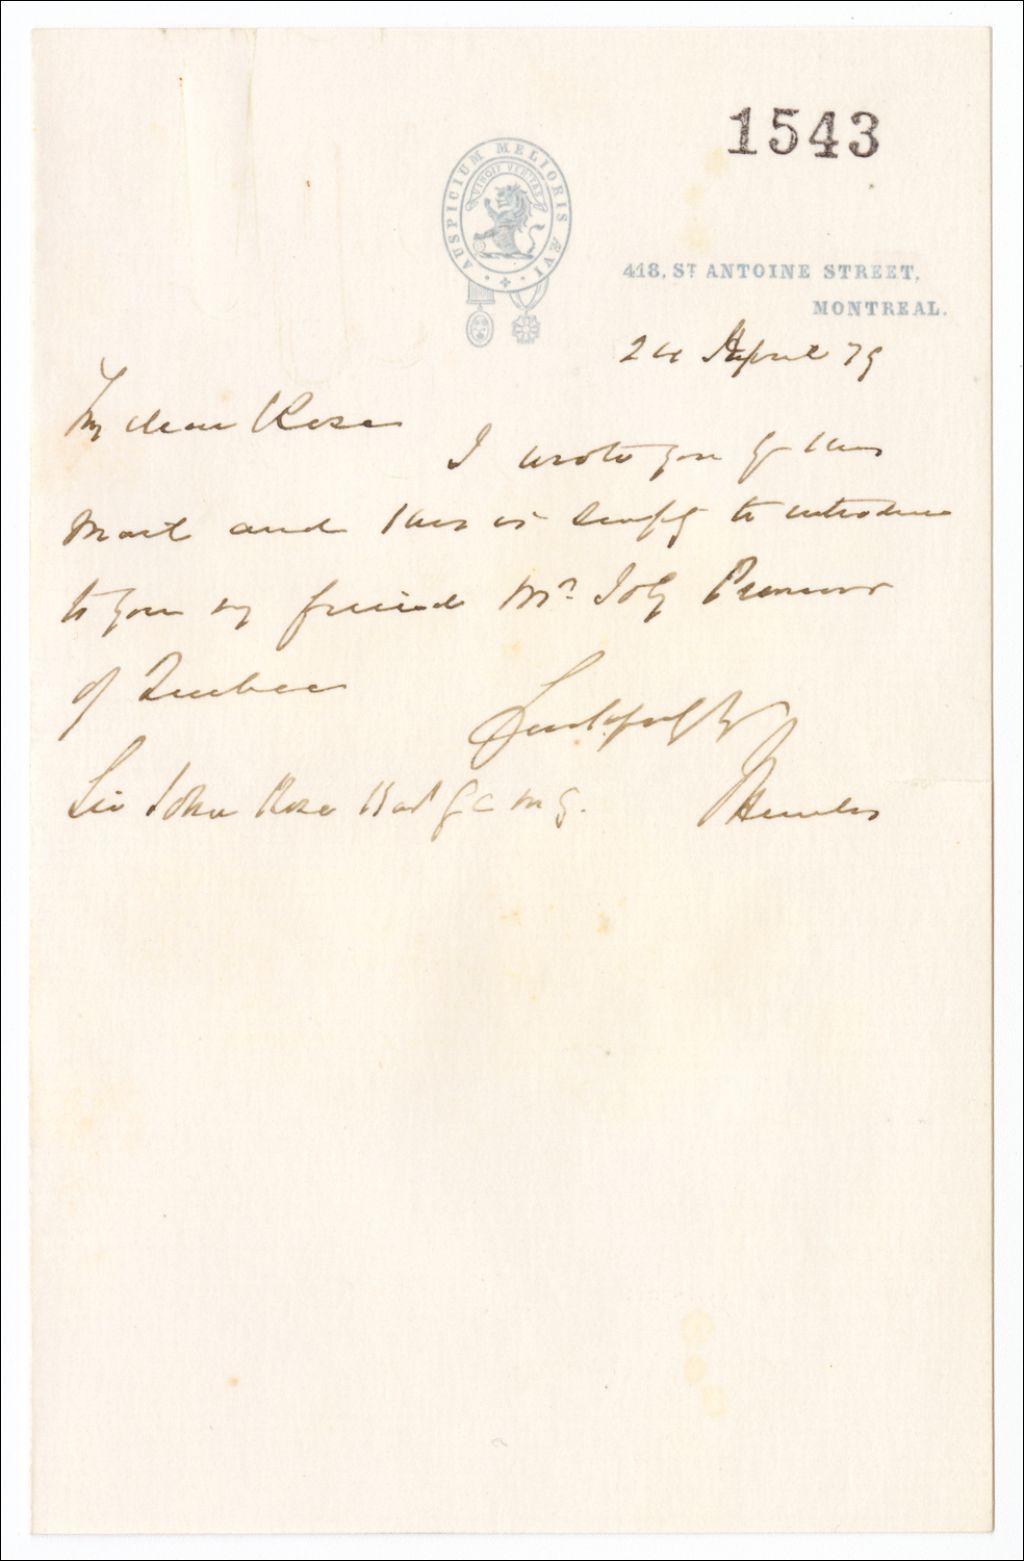 1543
AUSPICIUM MELIORIS ÆVI
VINCIT VERITAS
418, ST ANTOINE STREET,
MONTREAL.
24 April 79
My dear Rose
I wrote you by this
Mail and this is simply to introduce
to you my friend Mr. Joly Premier
of Quebec
Faithfully
Sir John Rose Bart G C M G.